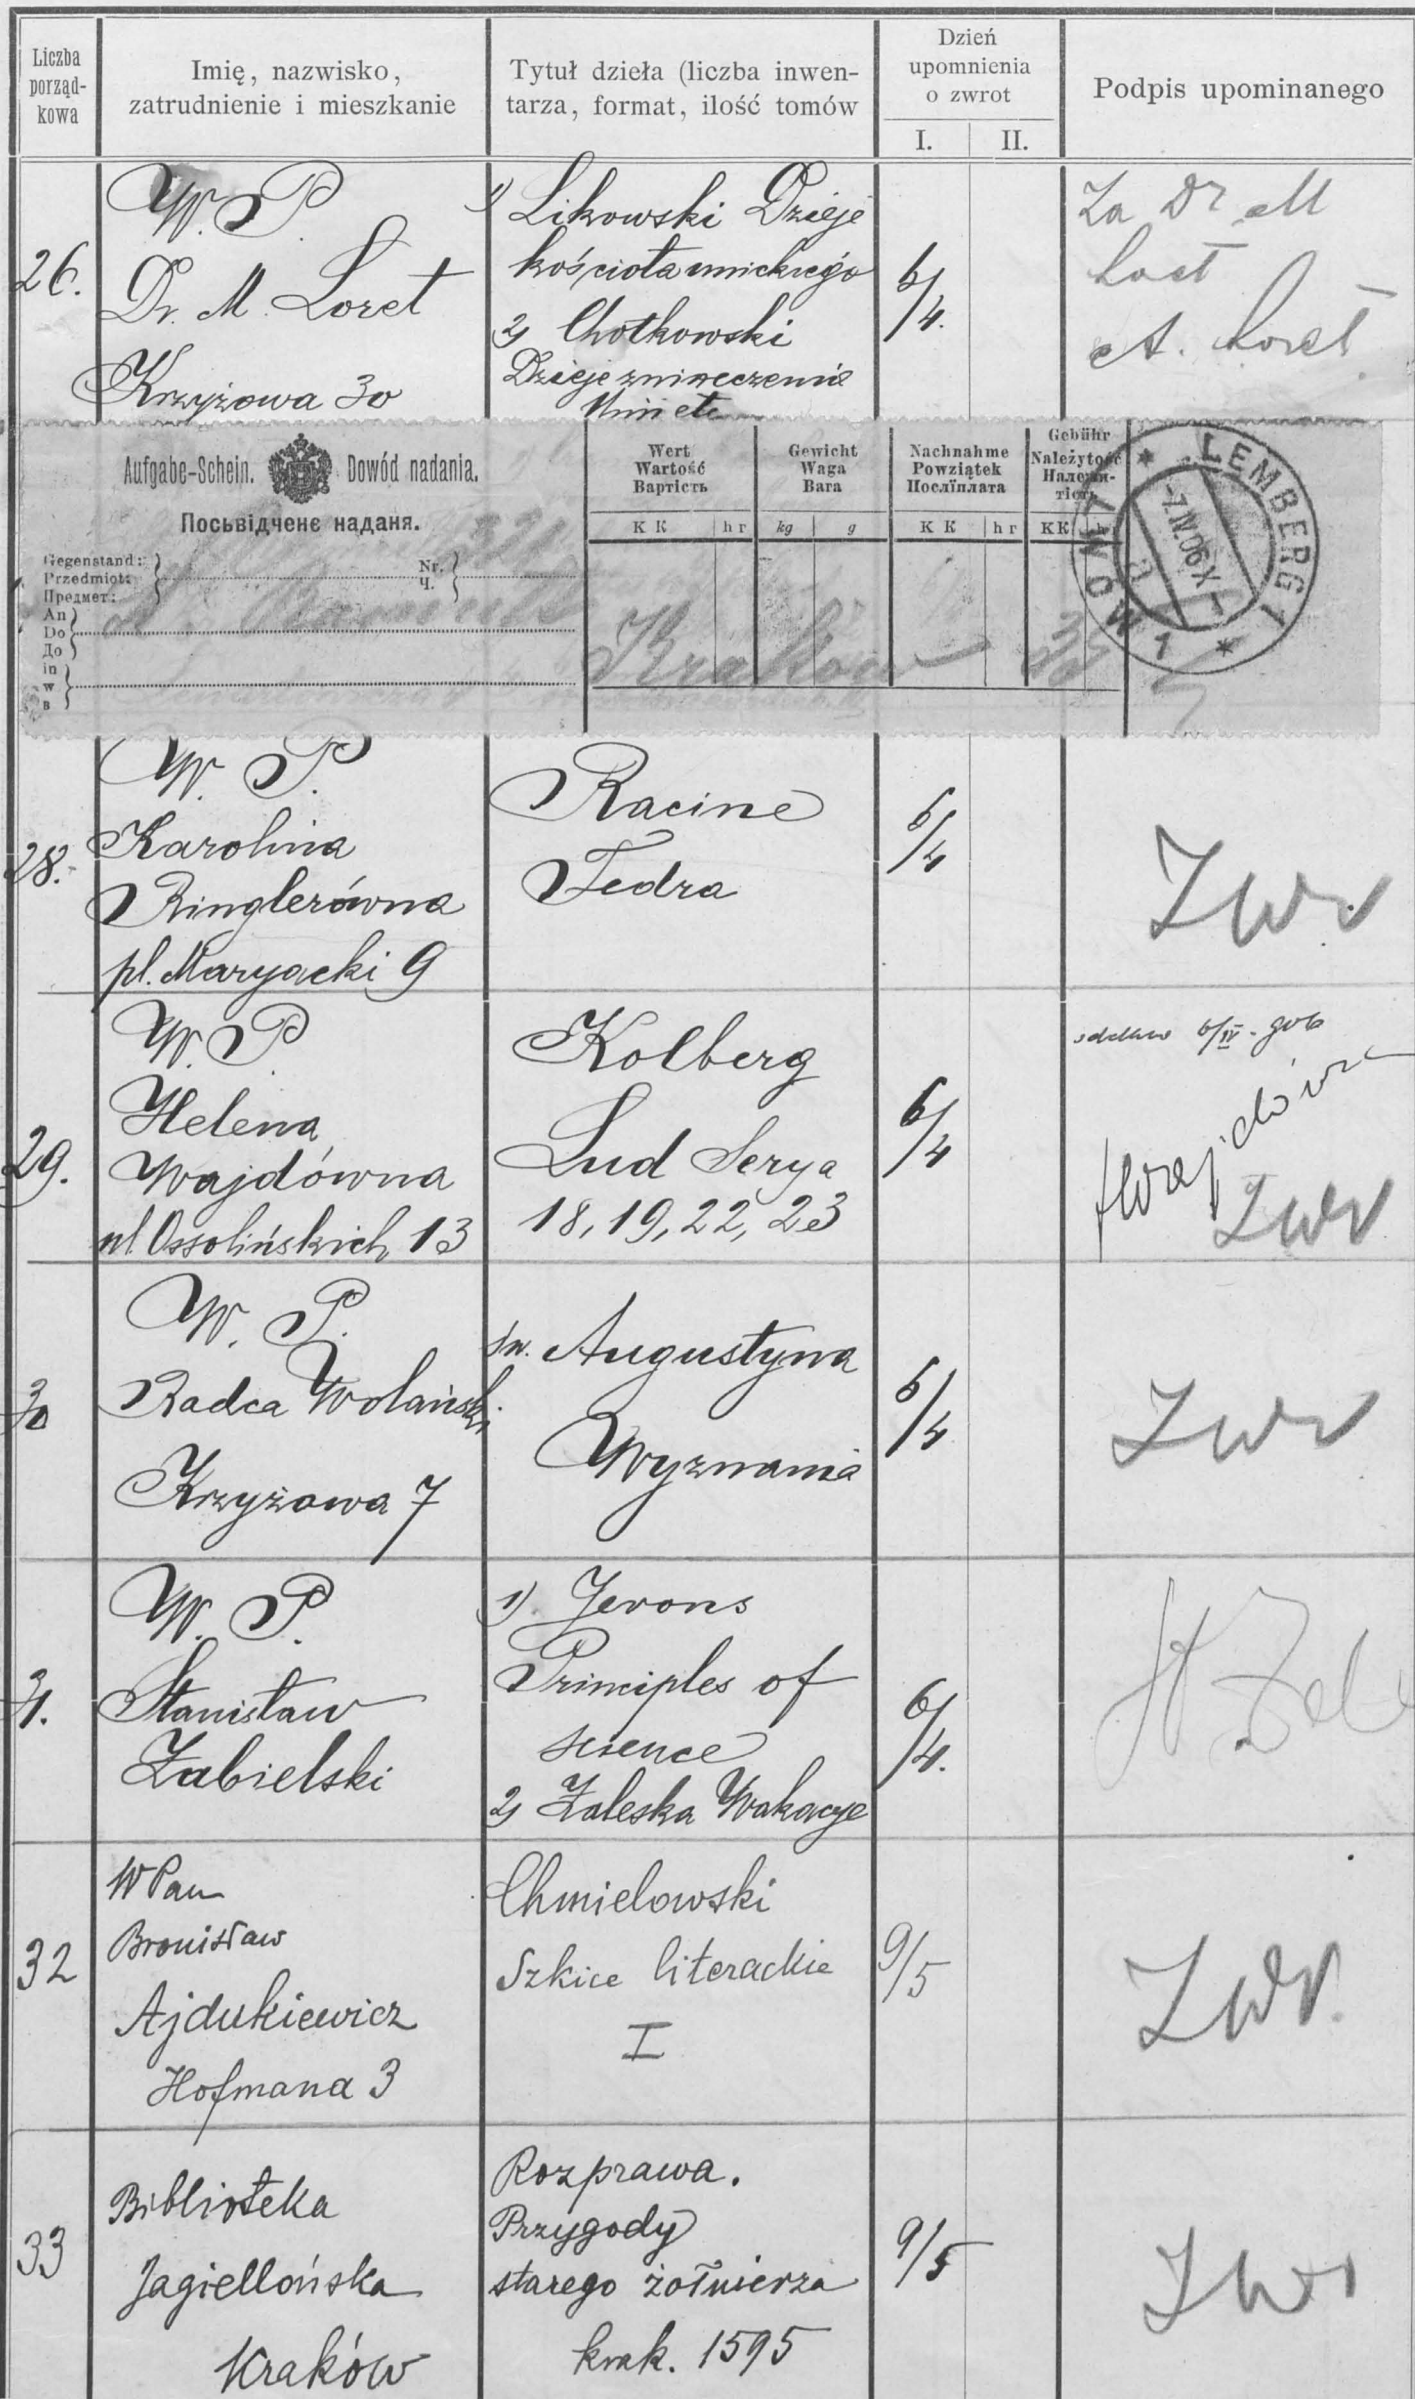 Liczba porząd-kowa
Imię, nazwisko, zatrudnienie i mieszkanie
Tytuł dzieła (liczba inwen-tarza, format, ilość tomów
Dzień upomnienia o zwrot
I. II.
Podpis upominanego
26.
W. P.
Dr. M. Loret
Krzyżowa 30
1) Likowski Dzieje
kościoła unickiego
2) Chotkowski
Dzieje zniweczenia
Unii etc
6/4.
Za Dr M
Loret
A. Loret
Aufgabe-Schein. Dowód nadania.
Посьвідченє наданя.
Gegenstand:
Przedmiot:
Предмет:
Nr.
Ч.
An
Do
До
in
w
в
Wert
Wartość
Вартість
K K hr
Gewicht
Waga
Вага
kg g
Nachnahme
Powziątek
Послїплата
K K hr
Gebühr
Należytość
Належи-
тість
K K h
Kraków
LEMBERG 1
LWÓW 1
-7.IV.06 X-
28.
W. P.
Karolina
Ringlerówna
pl. Maryacki 9
Racine
Fedra
6/4
Zwr.
29.
W. P.
Helena
Wajdówna
ul Ossolińskich 13
Kolberg
Lud Serya
18, 19, 22, 23
6/4
oddano 6/IV. 906
HWajdówna
Zwr
30
W. P.
Radca Wolański
Krzyżowa 7
św. Augustyna
Wyznania
6/4
Zwr
31.
W. P.
Stanisław
Zabielski
1) Jevons
Principles of
science
2) Zaleska Wakacye
6/4.
32
WPan
Bronisław
Ajdukiewicz
Hofmana 3
Chmielowski
Szkice literackie
I
9/5
Zwr.
33
Biblioteka
Jagiellońska
Kraków
Rozprawa.
Przygody
starego żołnierza
krak. 1595
9/5
Zwr